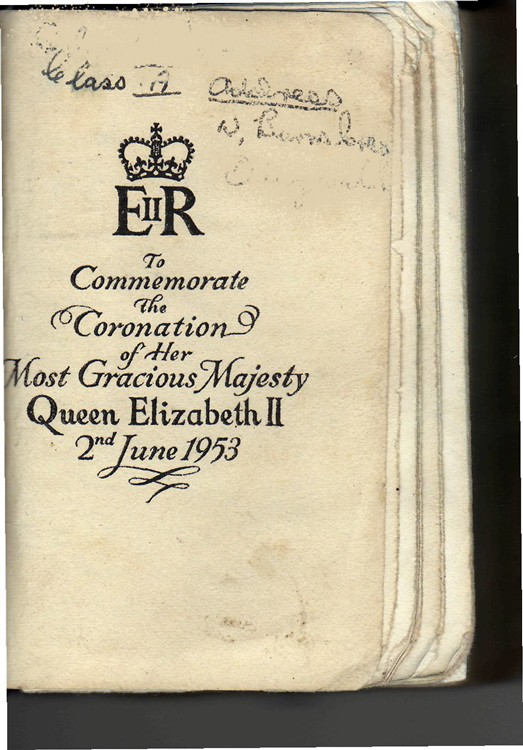 Class IA Address
W,
EIIR
To
Commemorate
the
Coronation
of Her
Most Gracious Majesty
Queen Elizabeth II
2nd June 1953